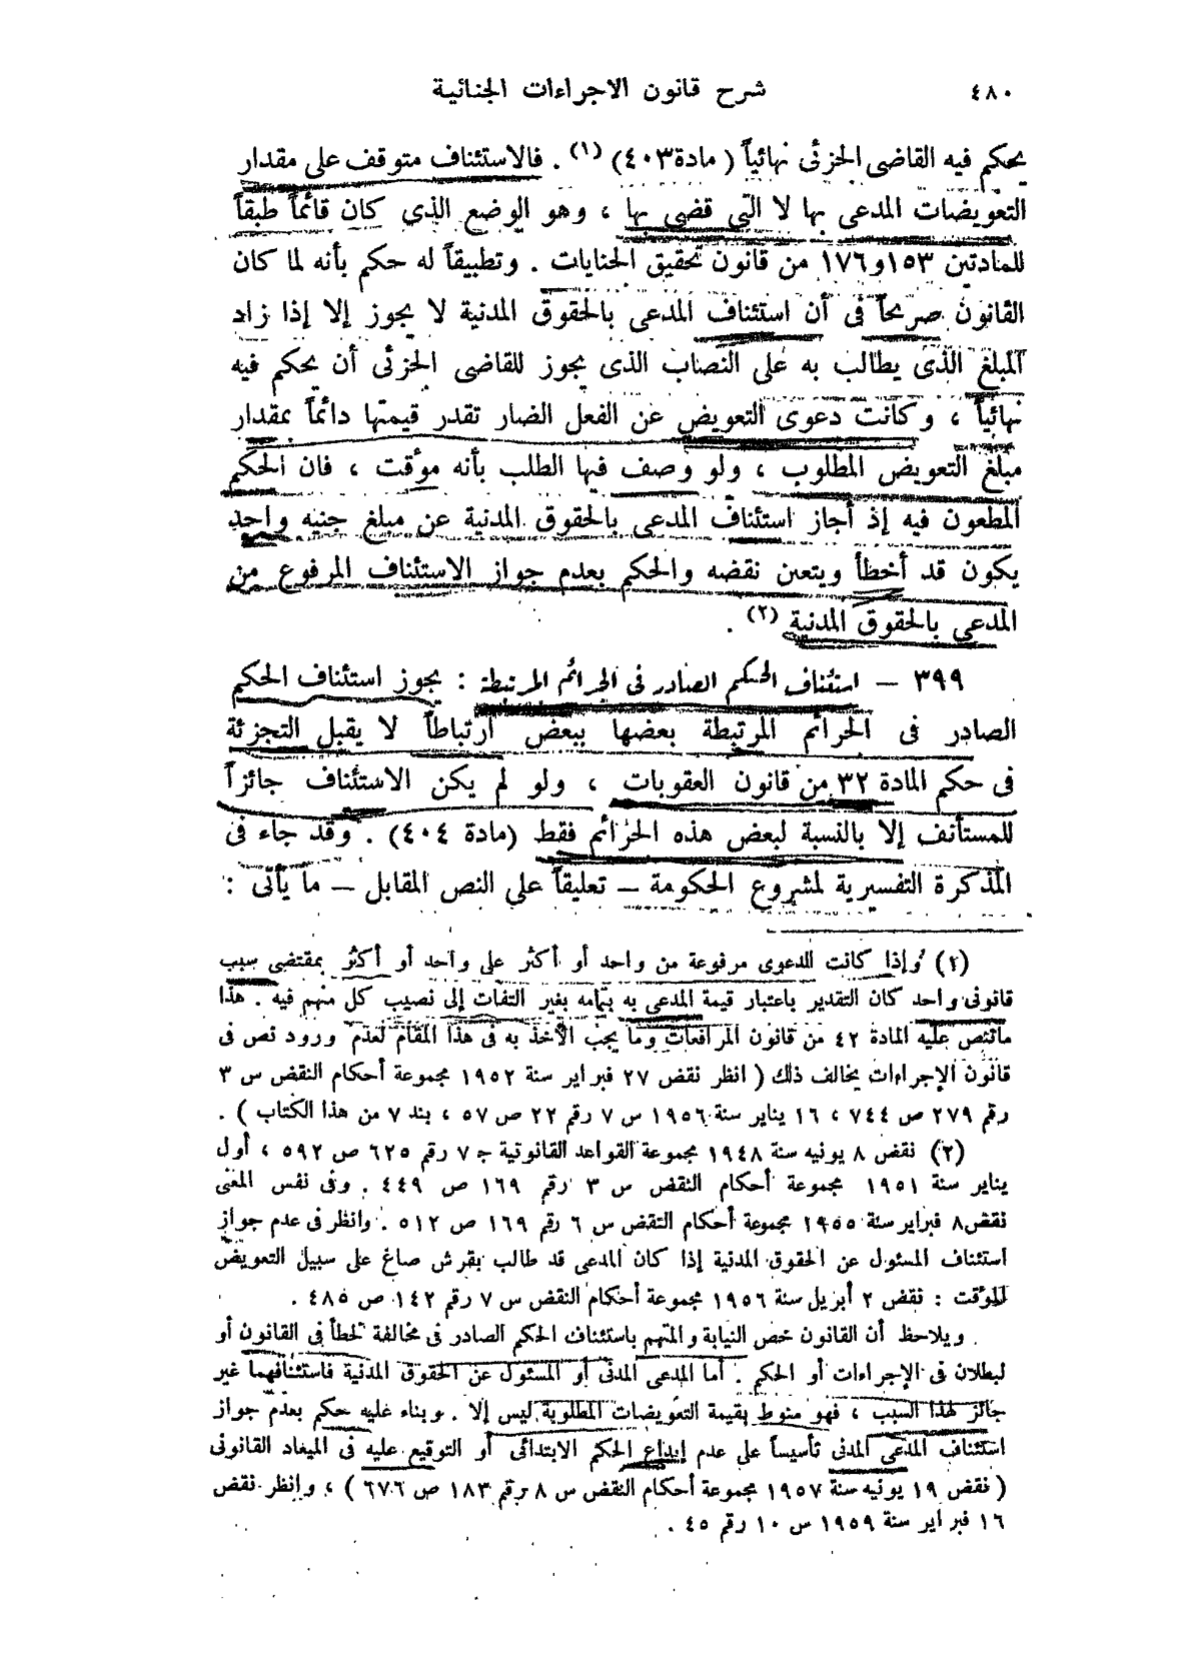 ٤٨٠
شرح قانون الاجراءات الجنائية
يحكم فيه القاضى الجزئى نهائياً ( مادة ٤٠٣) (١) . فالاستئناف متوقف على مقدار
التعويضات المدعى بها لا التى قضى بها ، وهو الوضع الذى كان قائماً طبقاً
للمادتين ١٥٣ و١٧٦ من قانون تحقيق الجنايات . وتطبيقاً له حكم بأنه لما كان
القانون صريحاً فى أن استئناف المدعى بالحقوق المدنية لا يجوز إلا إذا زاد
المبلغ الذى يطالب به على النصاب الذى يجوز للقاضى الجزئى أن يحكم فيه
نهائياً ، وكانت دعوى التعويض عن الفعل الضار تقدر قيمتها دائماً بمقدار
مبلغ التعويض المطلوب ، ولو وصف فيها الطلب بأنه موقت ، فان الحكم
المطعون فيه إذ أجاز استئناف المدعى بالحقوق المدنية عن مبلغ جنيه واحد
يكون قد أخطأ ويتعين نقضه والحكم بعدم جواز الاستئناف المرفوع من
المدعى بالحقوق المدنية (٢) .
٣٩٩ – استئناف الحكم الصادر فى الجرائم المرتبطة : يجوز استئناف الحكم
الصادر فى الجرائم المرتبطة بعضها ببعض ارتباطاً لا يقبل التجزئة
فى حكم المادة ٣٢ من قانون العقوبات ، ولو لم يكن الاستئناف جائزاً
للمستأنف إلا بالنسبة لبعض هذه الجرائم فقط (مادة ٤٠٤) . وقد جاء فى
المذكرة التفسيرية لمشروع الحكومة – تعليقاً على النص المقابل – ما يأتى :
(١) وإذا كانت الدعوى مرفوعة من واحد أو أكثر على واحد أو أكثر بمقتضى سبب
قانونى واحد كان التقدير باعتبار قيمة المدعى به بتمامه بغير التفات إلى نصيب كل منهم فيه . هذا
ماتنص عليه المادة ٤٢ من قانون المرافعات وما يجب الأخذ به فى هذا المقام لعدم ورود نص فى
قانون الإجراءات يخالف ذلك ( انظر نقض ٢٧ فبراير سنة ١٩٥٢ مجموعة أحكام النقض س ٣
رقم ٢٧٩ ص ٧٤٤ ، ١٦ يناير سنة ١٩٥٦ س ٧ رقم ٢٢ ص ٥٧ ، بند ٧ من هذا الكتاب ) .
(٢) نقض ٨ يونيه سنة ١٩٤٨ مجموعة القواعد القانونية ج ٧ رقم ٦٢٥ ص ٥٩٢ ، أول
يناير سنة ١٩٥١ مجموعة أحكام النقض س ٣ رقم ١٦٩ ص ٤٤٩ . وفى نفس المعنى
نقض ٨ فبراير سنة ١٩٥٥ مجموعة أحكام النقض س ٦ رقم ١٦٩ ص ٥١٢ . وانظر فى عدم جواز
استئناف المسئول عن الحقوق المدنية إذا كان المدعى قد طالب بقرش صاغ على سبيل التعويض
الموقت : نقض ٢ أبريل سنة ١٩٥٦ مجموعة أحكام النقض س ٧ رقم ١٤٢ ص ٤٨٥ .
ويلاحظ أن القانون خص النيابة والمتهم باستئناف الحكم الصادر فى مخالفة لخطأ فى القانون أو
لبطلان فى الإجراءات أو الحكم . أما المدعى المدنى أو المسئول عن الحقوق المدنية فاستئنافهما غير
جائز لهذا السبب ، فهو منوط بقيمة التعويضات المطلوبة ليس إلا . وبناء عليه حكم بعدم جواز
استئناف المدعى المدنى تأسيساً على عدم إيداع الحكم الابتدائى أو التوقيع عليه فى الميعاد القانونى
( نقض ١٩ يونيه سنة ١٩٥٧ مجموعة أحكام النقض س ٨ رقم ١٨٣ ص ٦٧٦ ) ، وانظر نقض
١٦ فبراير سنة ١٩٥٩ س ١٠ رقم ٤٥ .